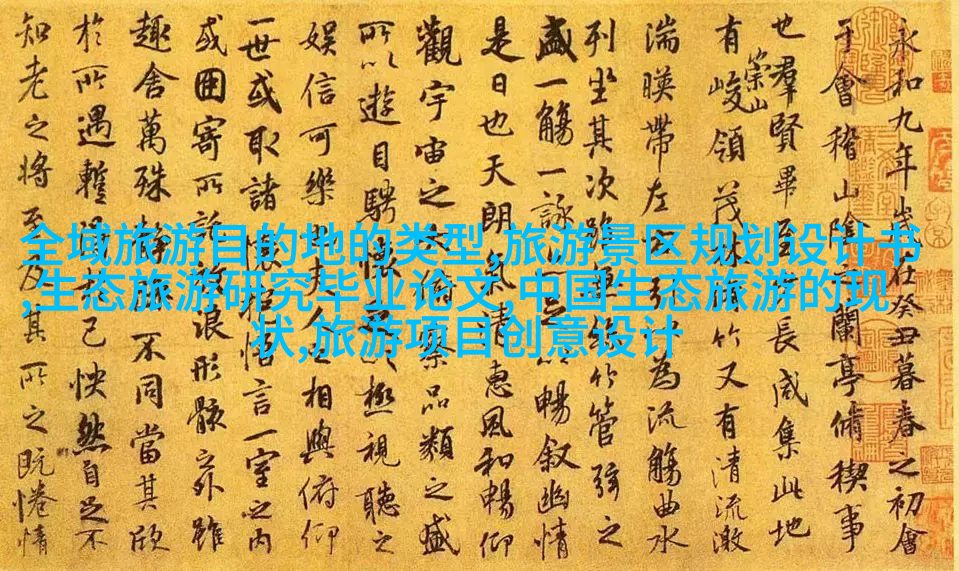 全域旅游目的地的类型,旅游景区规划设计书
,生态旅游研究毕业论文,中国生态旅游的现
状,旅游项目创意设计
永和九年歲在癸丑暮春之初會
于會稽山陰之蘭亭脩稧事
也羣賢畢至少長咸集此地
有崇山峻領茂林脩竹又有清流激
湍暎帶左右引以為流觴曲水
列坐其次雖無絲竹管弦之
盛一觴一詠亦足以暢叙幽情
是日也天朗氣清惠風和暢仰
觀宇宙之大俯察品類之盛
所以遊目騁懷足以極視聽之
娛信可樂也夫人之相與俯仰
一世或取諸懷抱悟言一室之內
或因寄所託放浪形骸之外雖
趣舍萬殊靜躁不同當其欣
於所遇暫得於己怏然自足不
知老之將至及其所之既惓情